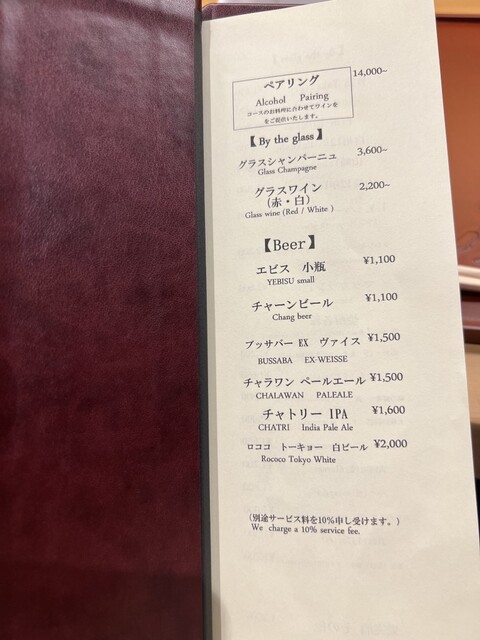 ペアリング 14,000–
Alcohol Pairing
コースのお料理に合わせてワインを
をご提供いたします。
【By the glass】
グラスシャンパーニュ 3,600–
Glass Champagne
グラスワイン 2,200–
(赤・白)
Glass wine (Red / White )
【Beer】
エビス 小瓶 ¥1,100
YEBISU small
チャーンビール ¥1,100
Chang beer
ブッサバー EX ヴァイス ¥1,500
BUSSABA EX-WEISSE
チャラワン ペールエール ¥1,500
CHALAWAN PALEALE
チャトリー IPA ¥1,600
CHATRI India Pale Ale
ロココ トーキョー 白ビール ¥2,000
Rococo Tokyo White
(別途サービス料を10%申し受けます。)
We charge a 10% service fee.